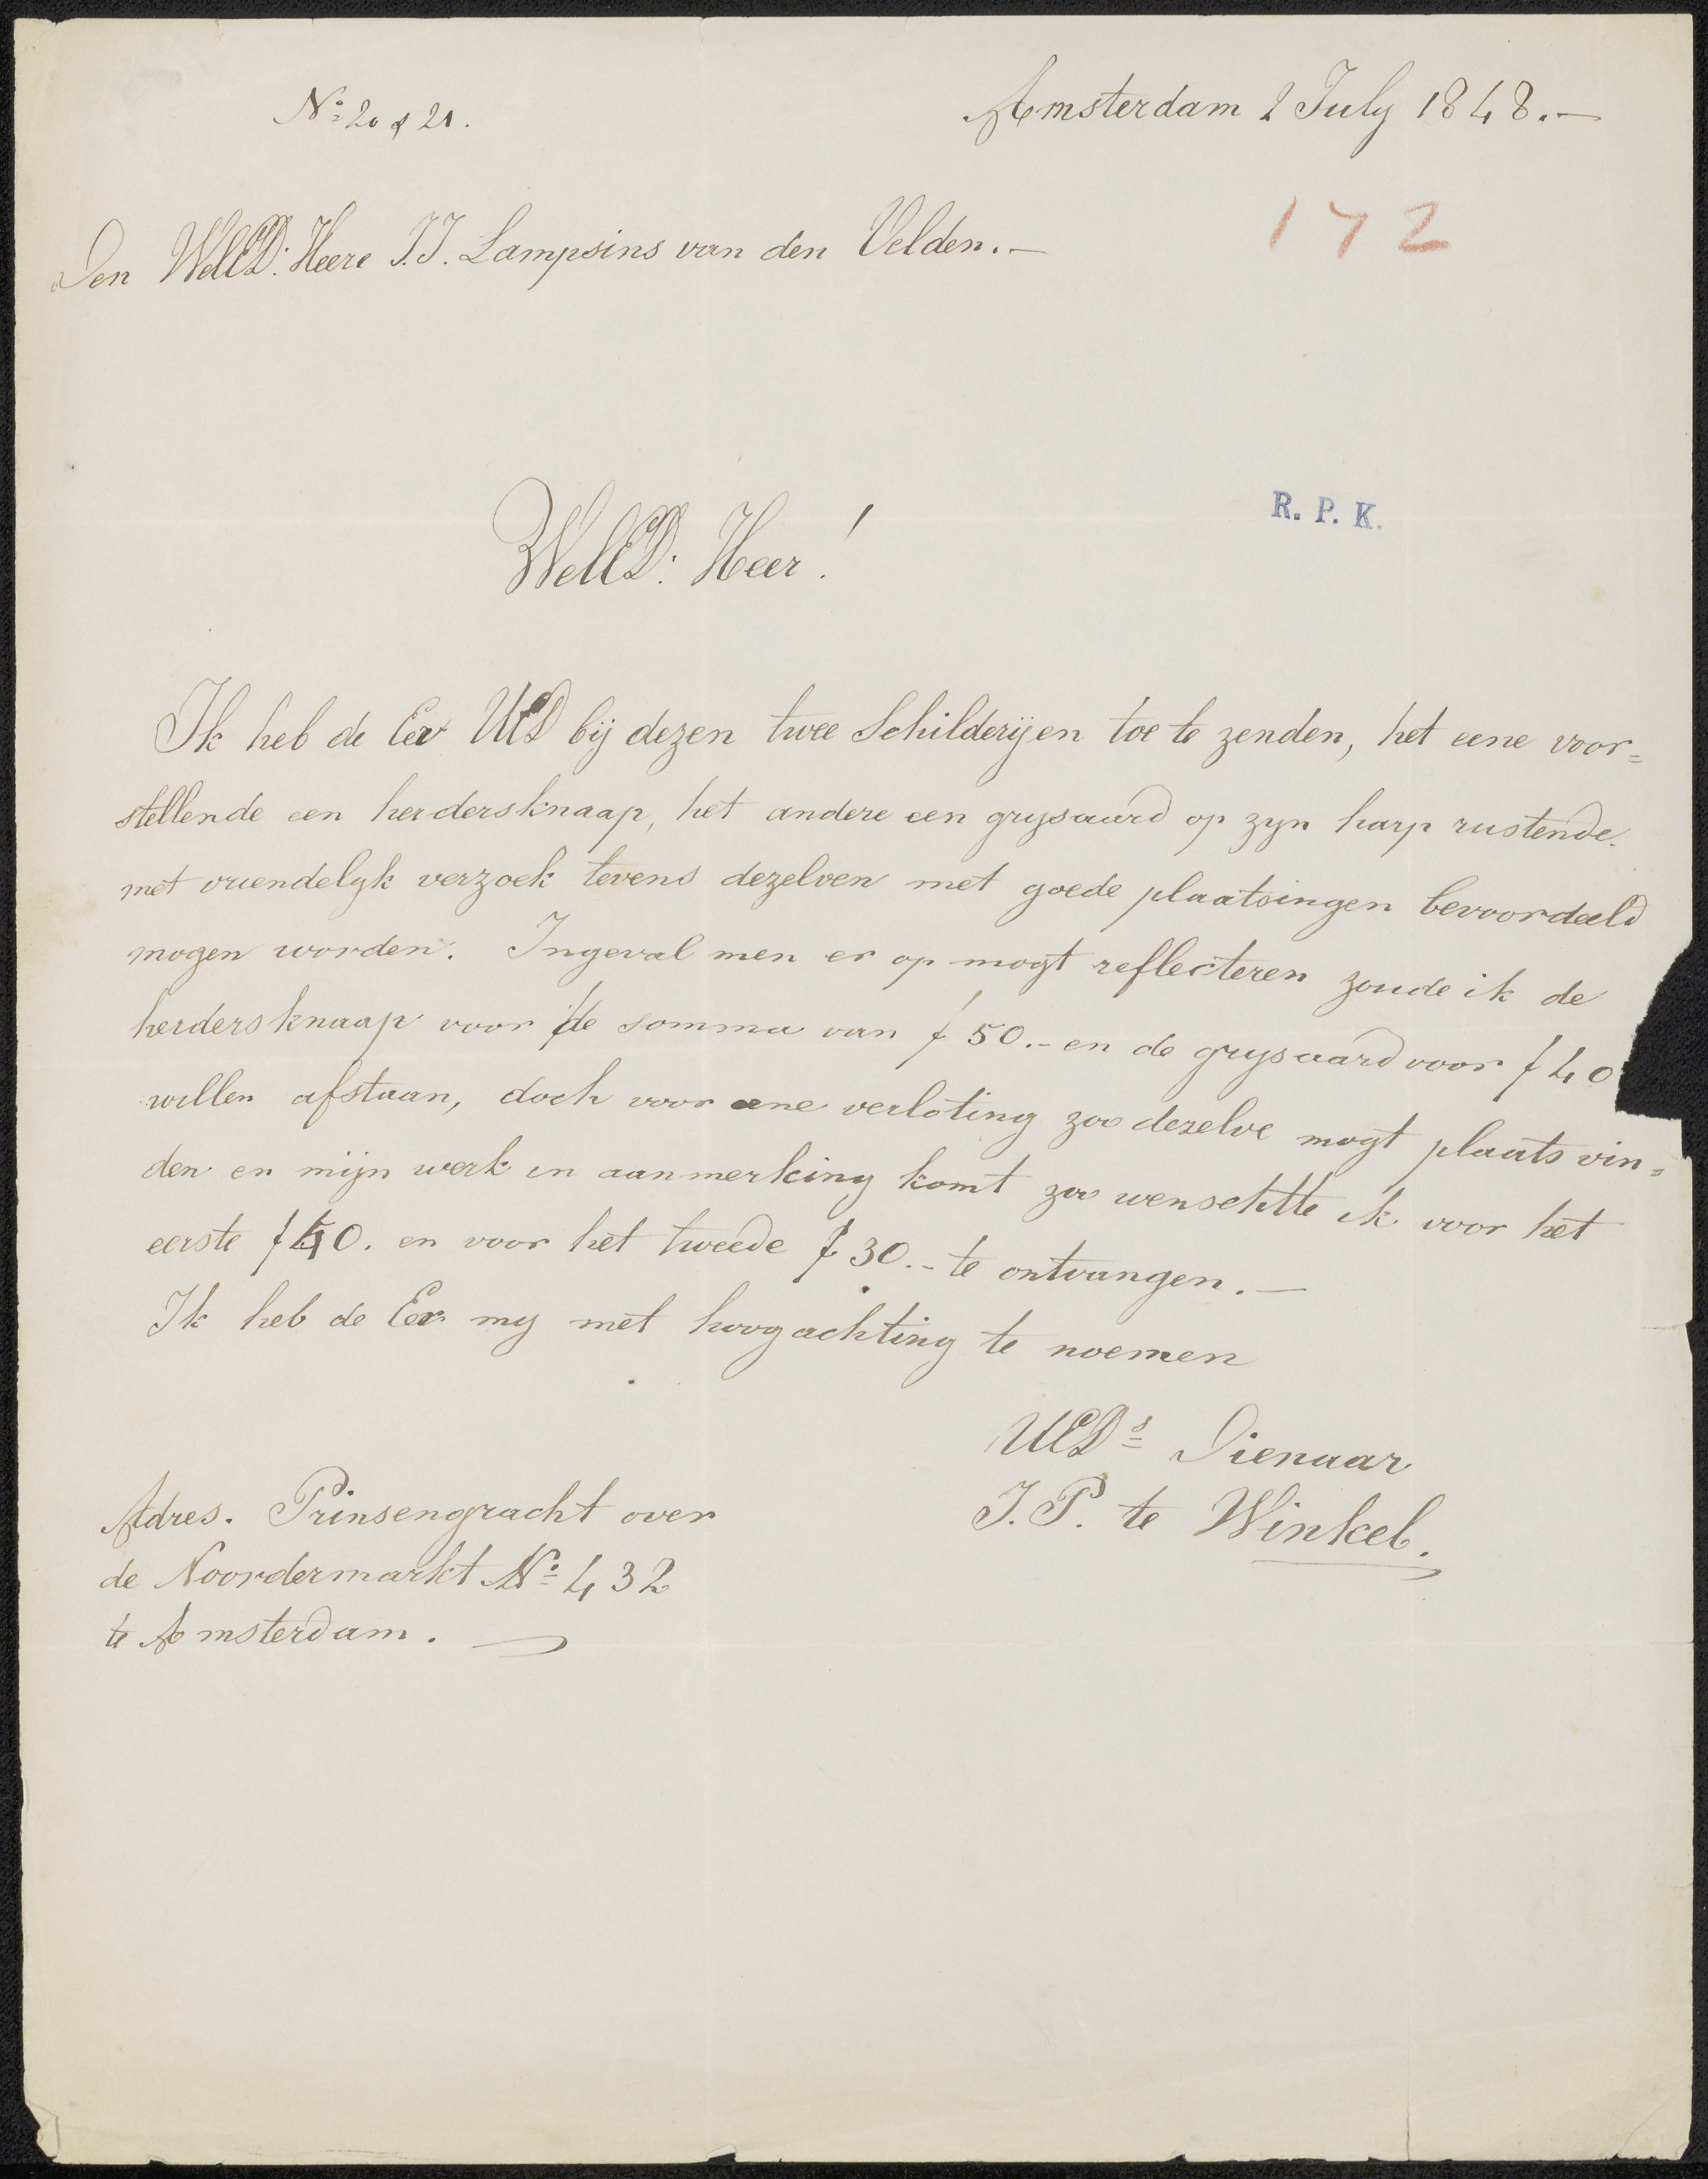 No: 20 & 21.
Amsterdam 2 July 1848.—
172
Den WelED: Heere J.J. Lampsins van den Velden.—
R. P. K.
WelED: Heer!
Ik heb de Eer UED bij dezen twee Schilderijen toe te zenden, het eene voor=
stellende een herdersknaap, het andere een grysaard op zyn harp rustende.
met vriendelyk verzoek tevens dezelven met goede plaatsingen bevoordeeld
mogen worden. Ingeval men er op mogt reflecteren zoude ik de
herdersknaap voor de somma van f 50.- en de grysaard voor f 40
willen afstaan, doch voor eene verloting zoo dezelve mogt plaats vin=
den en mijn werk in aanmerking komt zoo wenschtte ik voor het
eerste f 40. en voor het tweede f 30.- te ontvangen.—
Ik heb de Eer my met hoogachting te noemen
UEDs Dienaar
J.P. te Winkel.
Adres. Prinsengracht over
de Noordermarkt No 432
te Amsterdam.—